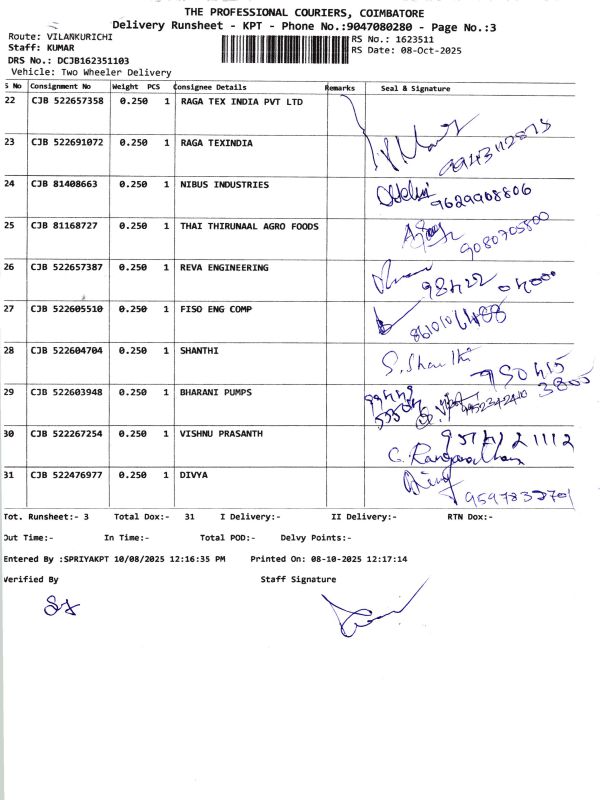 THE PROFESSIONAL COURIERS, COIMBATORE
Delivery Runsheet - KPT - Phone No.:9047080280 - Page No.:3
Route: VILANKURICHI
Staff: KUMAR
DRS No.: DCJB162351103
Vehicle: Two Wheeler Delivery
RS No.: 1623511
RS Date: 08-Oct-2025
S No Consignment No Weight PCS Consignee Details Remarks Seal & Signature
22 CJB 522657358 0.250 1 RAGA TEX INDIA PVT LTD
23 CJB 522691072 0.250 1 RAGA TEXINDIA
24 CJB 81408663 0.250 1 NIBUS INDUSTRIES 9629908806
25 CJB 81168727 0.250 1 THAI THIRUNAAL AGRO FOODS 9080705800
26 CJB 522657387 0.250 1 REVA ENGINEERING
27 CJB 522605510 0.250 1 FISO ENG COMP
28 CJB 522604704 0.250 1 SHANTHI S. Shanthi
29 CJB 522603948 0.250 1 BHARANI PUMPS
30 CJB 522267254 0.250 1 VISHNU PRASANTH
31 CJB 522476977 0.250 1 DIVYA
Tot. Runsheet:- 3 Total Dox:- 31 I Delivery:- II Delivery:- RTN Dox:-
Out Time:- In Time:- Total POD:- Delvy Points:-
Entered By :SPRIYAKPT 10/08/2025 12:16:35 PM Printed On: 08-10-2025 12:17:14
Verified By Staff Signature